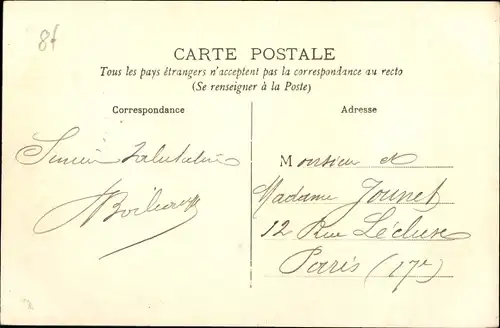 8f
CARTE POSTALE
Tous les pays étrangers n'acceptent pas la correspondance au recto
(Se renseigner à la Poste)
Correspondance
Adresse
Salutations
Monsieur et
Madame Jounet
12 Rue Lécluse
Paris (17e)